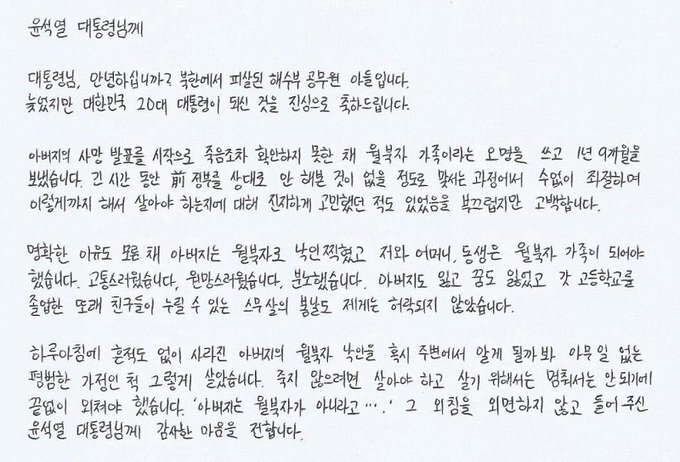 윤석열 대통령님께
대통령님, 안녕하십니까? 북한에서 피살된 해수부 공무원 아들입니다.
늦었지만 대한민국 20대 대통령이 되신 것을 진심으로 축하드립니다.
아버지의 사망 발표를 시작으로 죽음조차 확인하지 못한 채 월북자 가족이라는 오명을 쓰고 1년 9개월을
보냈습니다. 긴 시간 동안 前 정부를 상대로 안 해본 것이 없을 정도로 맞서는 과정에서 수없이 좌절하며
이렇게까지 해서 살아야 하는지에 대해 진지하게 고민했던 적도 있었음을 부끄럽지만 고백합니다.
명확한 이유도 모른 채 아버지는 월북자로 낙인찍혔고 저와 어머니, 동생은 월북자 가족이 되어야
했습니다. 고통스러웠습니다, 원망스러웠습니다, 분노했습니다. 아버지도 잃고 꿈도 잃었고 갓 고등학교를
졸업한 또래 친구들이 누릴 수 있는 스무살의 봄날도 제게는 허락되지 않았습니다.
하루아침에 흔적도 없이 사라진 아버지의 월북자 낙인을 혹시 주변에서 알게 될까봐 아무 일 없는
평범한 가정인 척 그렇게 살았습니다. 죽지 않으려면 살아야 하고 살기 위해서는 멈춰서는 안 되기에
끝없이 외쳐야 했습니다. '아버지는 월북자가 아니라고….' 그 외침을 외면하지 않고 들어 주신
윤석열 대통령님께 감사한 마음을 전합니다.